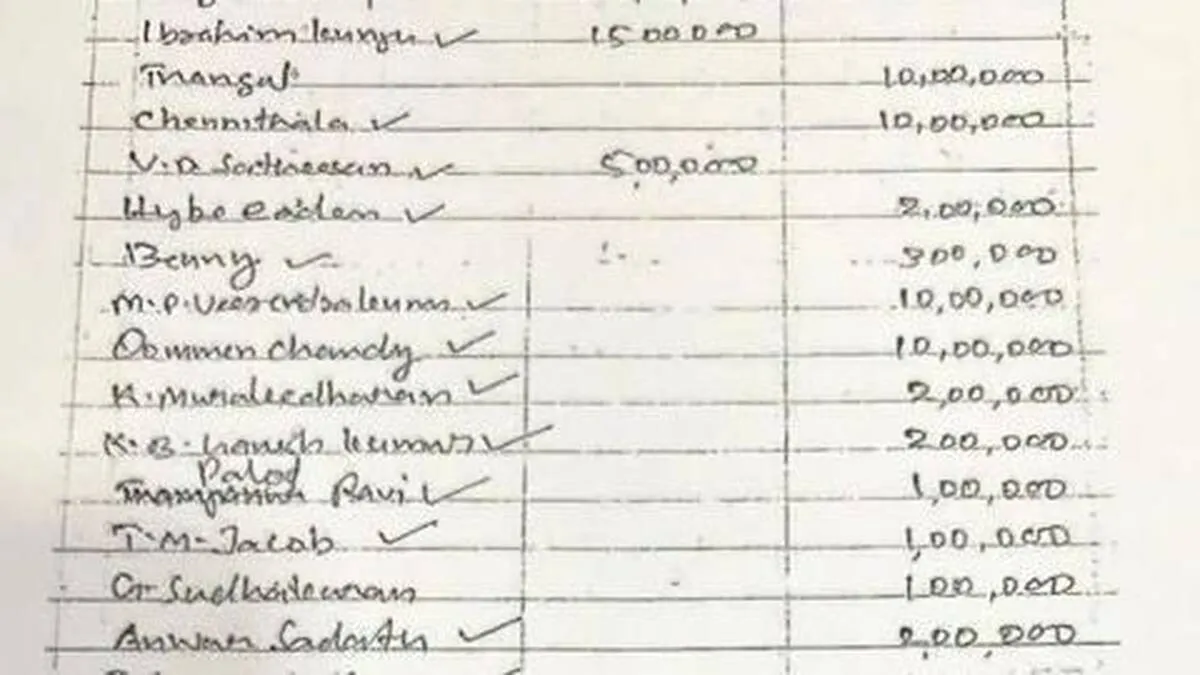 Ibrahim kunju ✓ 1500000
Thangal 10,00,000
Chennithala ✓ 10,00,000
V.D Satheesan ✓ 5,00,000
Hybe eaden ✓ 2,00,000
Benny ✓ 300,000
M.P. Veerendrakumar ✓ 10,00,000
Oommen chandy ✓ 10,00,000
K. Muraleedharan ✓ 2,00,000
K.B. Ganesh kumar ✓ 200,000
Palod Ravi ✓ 1,00,000
T.M. Jacob ✓ 1,00,000
G. Sudhakaran 1,00,000
Anwar Sadath ✓ 2,00,000